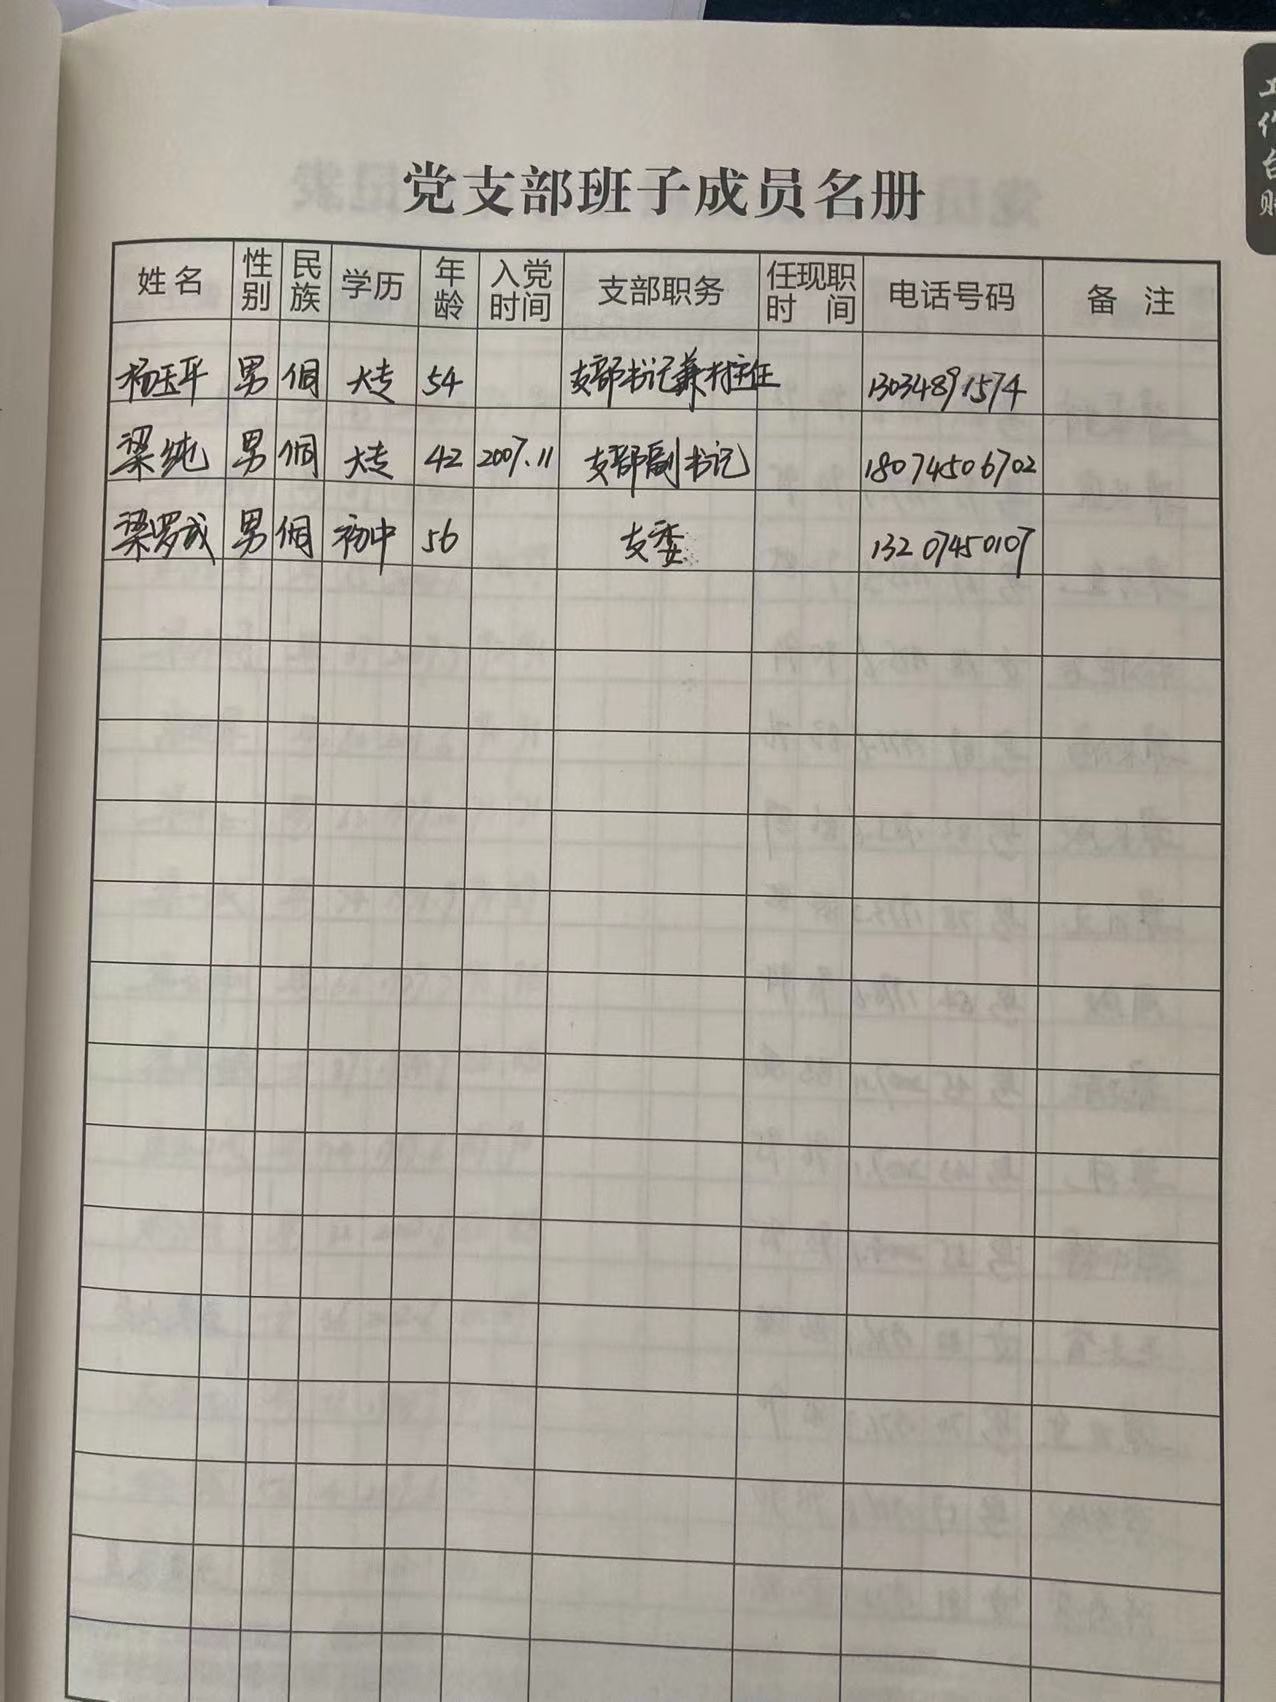 工作台账
党支部班子成员名册
姓名 性别 民族 学历 年龄 入党时间 支部职务 任现职时间 电话号码 备注
杨玉平 男 侗 大专 54 支部书记兼村主任 13034891574
梁纯 男 侗 大专 42 2007.11 支部副书记 18074506702
梁罗成 男 侗 初中 56 支委 13207450107